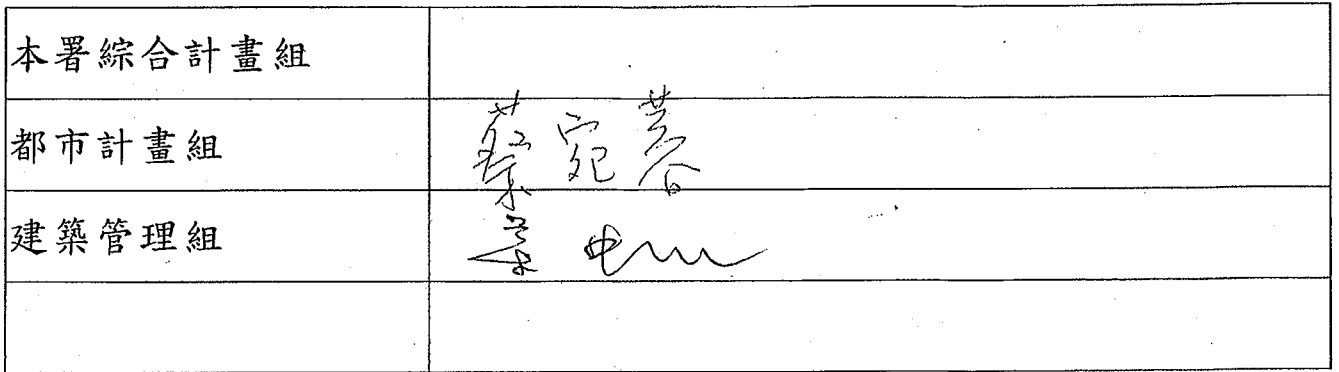 本署綜合計畫組
都市計畫組 蔡宛蓉
建築管理組